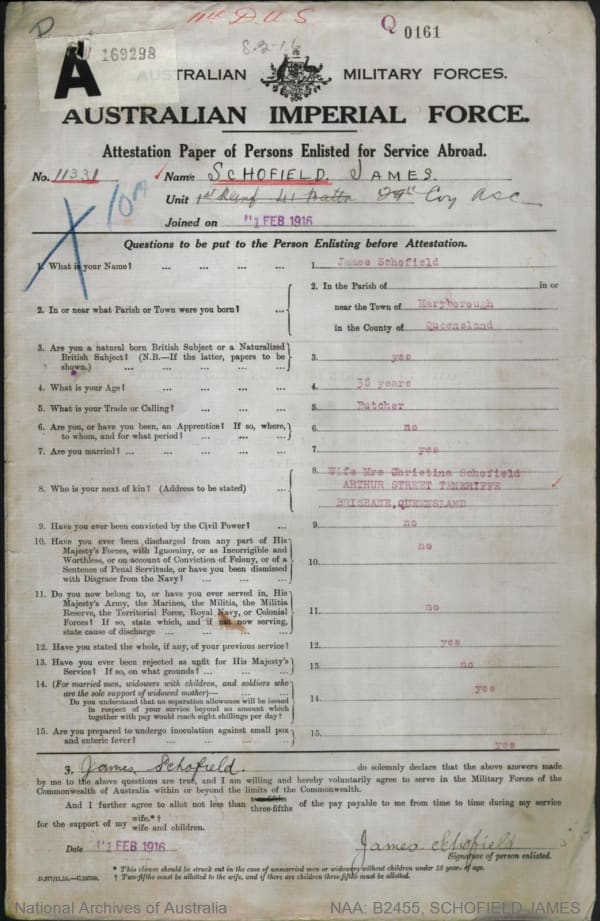 D
11th D.U.S
Q 0161
A 169298
8.3.16
AUSTRALIAN MILITARY FORCES.
AUSTRALIAN IMPERIAL FORCE.
Attestation Paper of Persons Enlisted for Service Abroad.
No. 11331 Name SCHOFIELD, JAMES.
Unit 1st Reinf 41 Battn Coy ASC
Joined on 11 FEB 1916
Questions to be put to the Person Enlisting before Attestation.
1. What is your Name? ... ... ... ... 1. James Schofield
2. In or near what Parish or Town were you born? ... 2. In the Parish of in or
near the Town of Maryborough
in the County of Queensland
3. Are you a natural born British Subject or a Naturalized
British Subject? (N.B.—If the latter, papers to be
shown.) ... ... ... ... 3. yes
4. What is your Age? ... ... ... ... 4. 38 years
5. What is your Trade or Calling? ... ... ... 5. Butcher
6. Are you, or have you been, an Apprentice? If so, where,
to whom, and for what period? ... ... ... 6. no
7. Are you married? ... ... ... ... ... 7. yes
8. Who is your next of kin? (Address to be stated) ... 8. Wife Mrs Christina Schofield
ARTHUR STREET TENERIFFE
BRISBANE, QUEENSLAND
9. Have you ever been convicted by the Civil Power? ... 9. no
10. Have you ever been discharged from any part of His
Majesty's Forces, with Ignominy, or as Incorrigible and
Worthless, or on account of Conviction of Felony, or of a
Sentence of Penal Servitude, or have you been dismissed
with Disgrace from the Navy? ... ... ... 10. no
11. Do you now belong to, or have you ever served in, His
Majesty's Army, the Marines, the Militia, the Militia
Reserve, the Territorial Force, Royal Navy, or Colonial
Forces? If so, state which, and if not now serving,
state cause of discharge ... ... ... ... 11. no
12. Have you stated the whole, if any, of your previous service? 12. yes
13. Have you ever been rejected as unfit for His Majesty's
Service? If so, on what grounds? ... ... ... 13. no
14. (For married men, widowers with children, and soldiers who
are the sole support of widowed mother)— ... ...
Do you understand that no separation allowance will be issued
in respect of your service beyond an amount which
together with pay would reach eight shillings per day? 14. yes
15. Are you prepared to undergo inoculation against small pox
and enteric fever? ... ... ... ... 15. yes
I, James Schofield. do solemnly declare that the above answers made
by me to the above questions are true, and I am willing and hereby voluntarily agree to serve in the Military Forces of the
Commonwealth of Australia within or beyond the limits of the Commonwealth.
And I further agree to allot not less than two-fifths three-fifths of the pay payable to me from time to time during my service
for the support of my wife.*† wife and children.
Date 11 FEB 1916
James Schofield
Signature of person enlisted.
* This clause should be struck out in the case of unmarried men or widowers without children under 18 years of age.
† Two-fifths must be allotted to the wife, and if there are children three-fifths must be allotted.
National Archives of Australia
NAA: B2455, SCHOFIELD JAMES